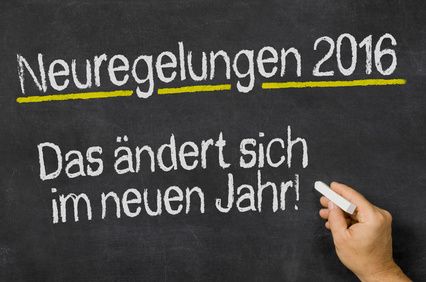 Neuregelungen 2016
Das ändert sich
im neuen Jahr!